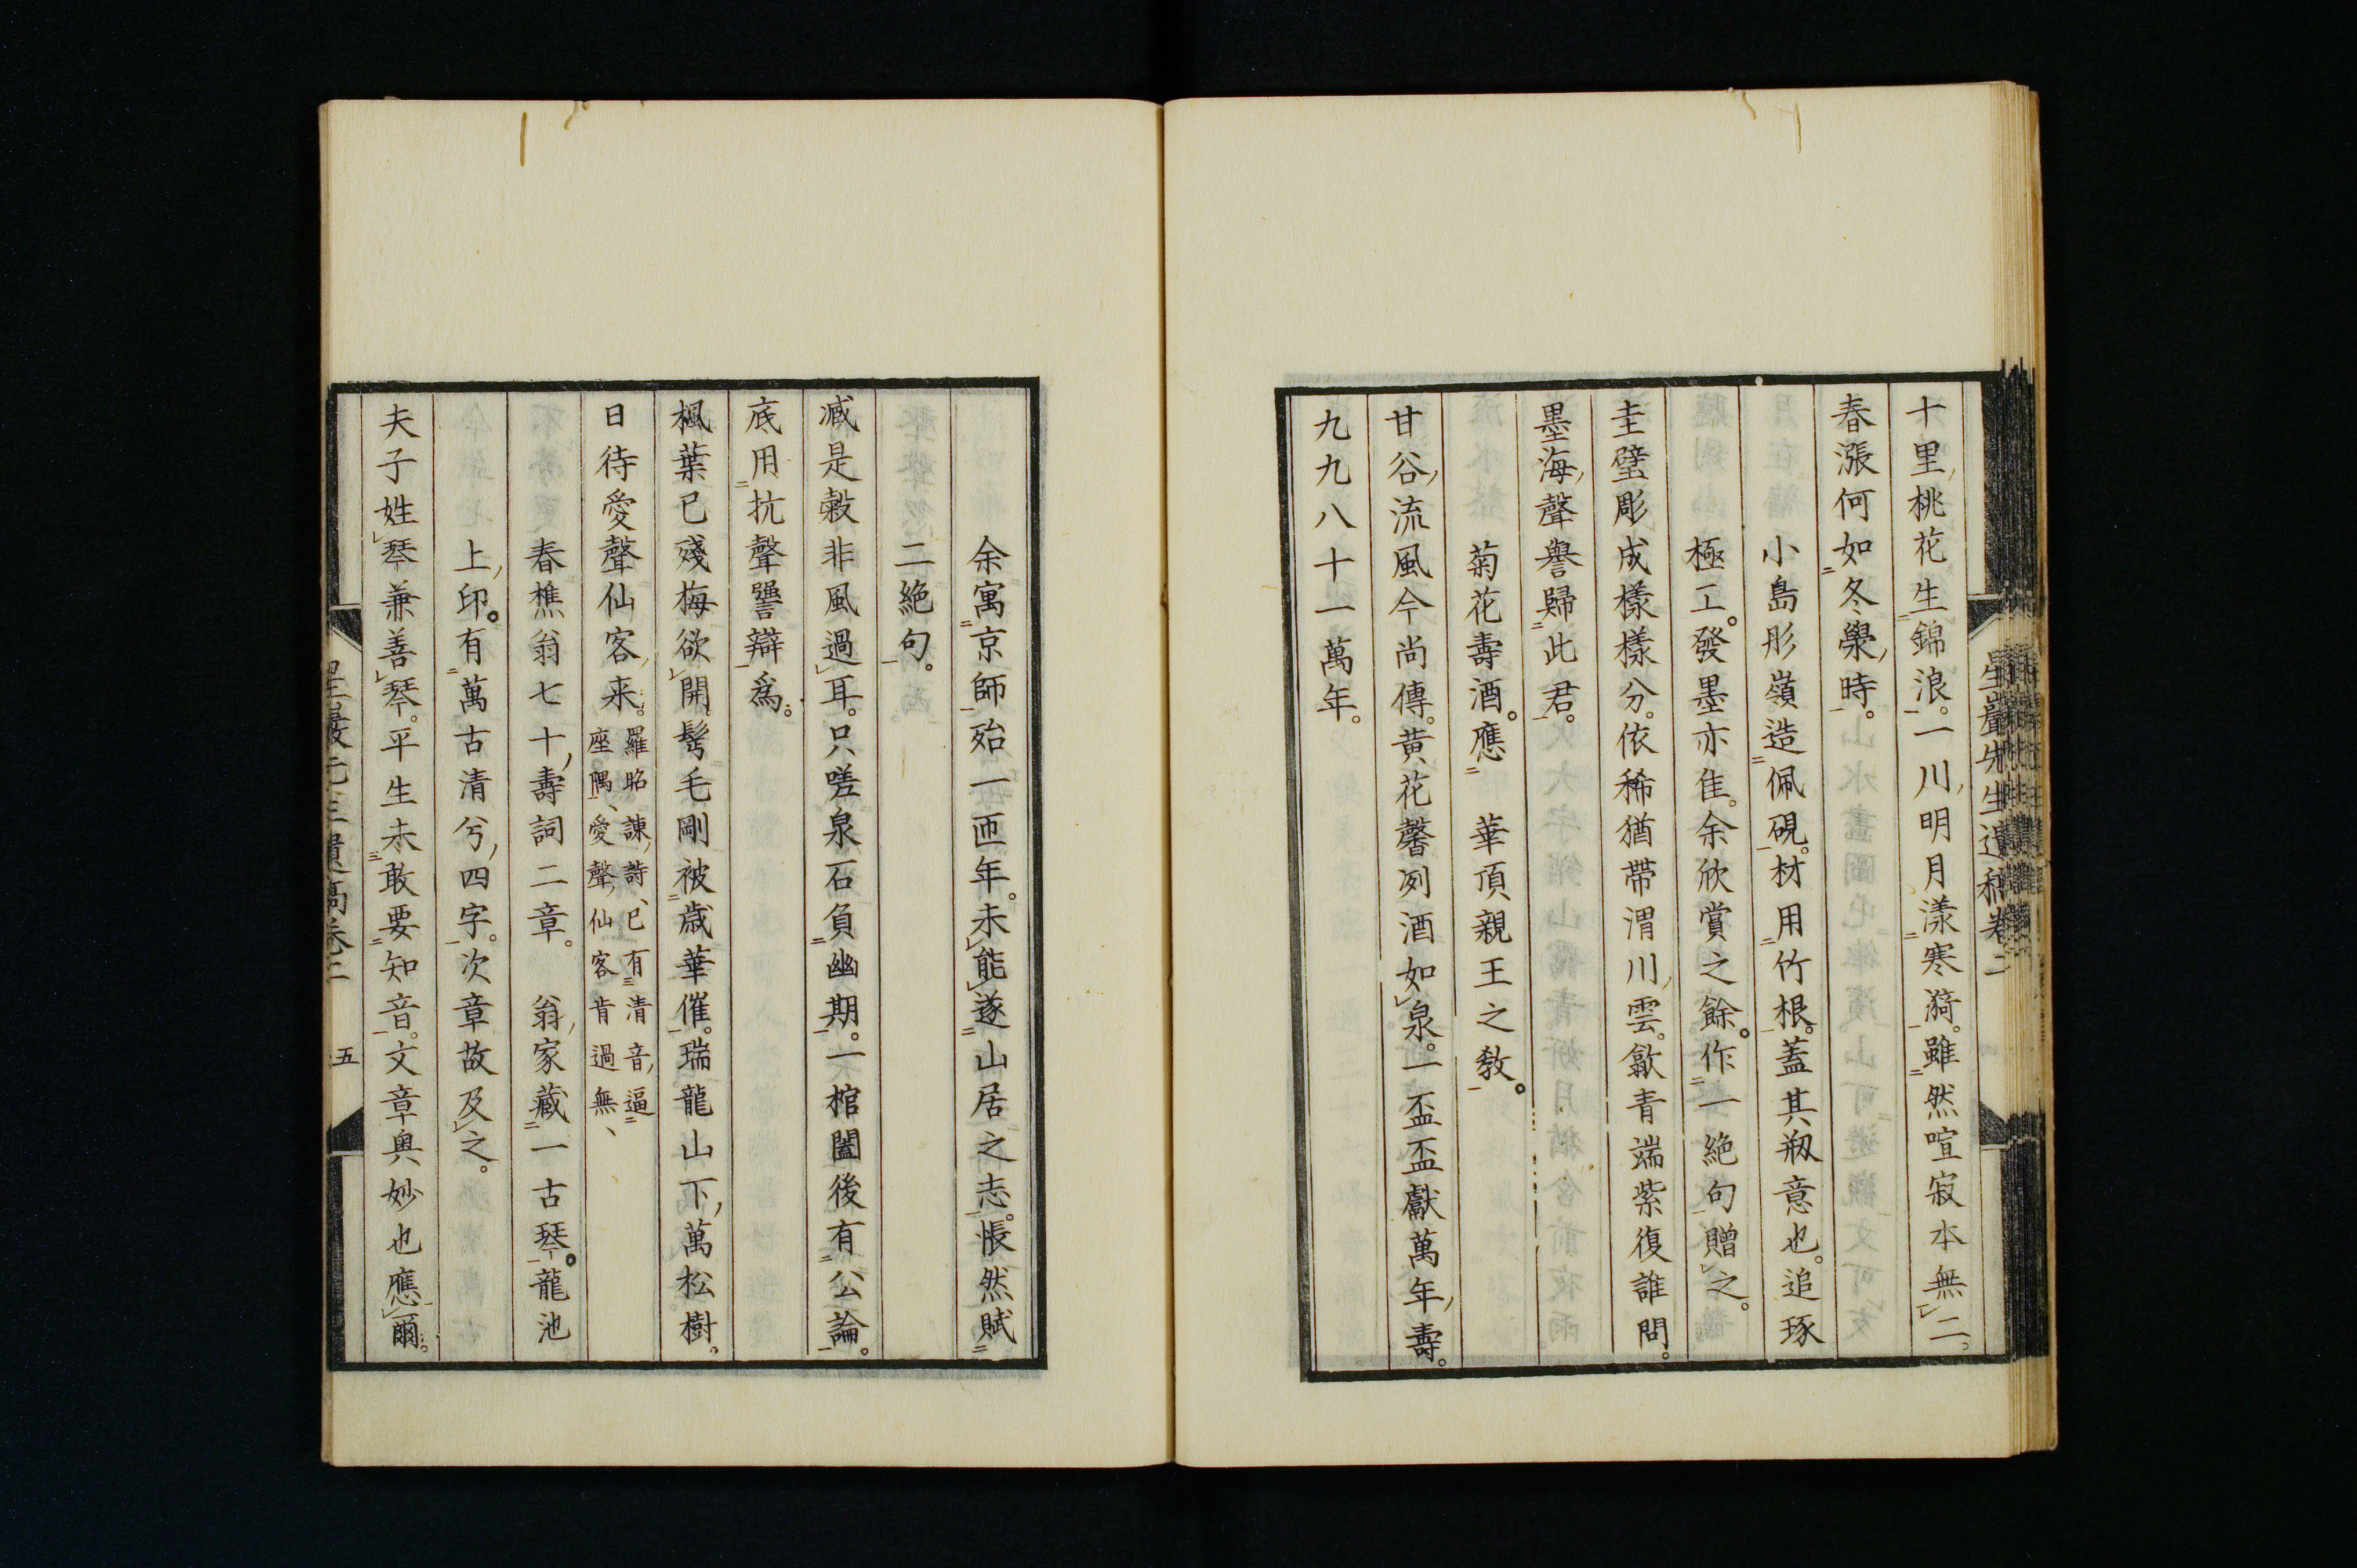 星巖先生遺稿卷二
十里桃花生錦浪。一川明月漾寒漪。雖然喧寂本無二。
春漲何如冬澩時。
小島彤嶺造佩硯。材用竹根。蓋其剏意也。追琢
極工。發墨亦佳。余欣賞之餘。作一絶句贈之。
圭璧彫成樣樣分。依稀猶帶渭川雲。歙青端紫復誰問。
墨海聲譽歸此君。
菊花壽酒。應　華頂親王之敎。
甘谷流風今尚傳。黄花馨洌酒如泉。一盃盃獻萬年壽。
九九八十一萬年。
余寓京師殆一匝年。未能遂山居之志。悵然賦
二絶句。
減是穀非風過耳。只嗟泉石負幽期。一棺闔後有公論。
底用抗聲彊辯爲。
楓葉已殘梅欲開。鬂毛剛被歳華催。瑞龍山下萬松樹。
日待愛聲仙客来。羅昭諫詩、已有清音逼
座隅、愛聲仙客肯過無、
春樵翁七十壽詞二章。　翁家藏一古琴。龍池
上印。有萬古清兮四字。次章故及之。
夫子姓琴兼善琴。平生未敢要知音。文章奥妙也應爾。
星巖先生遺稿卷二　五